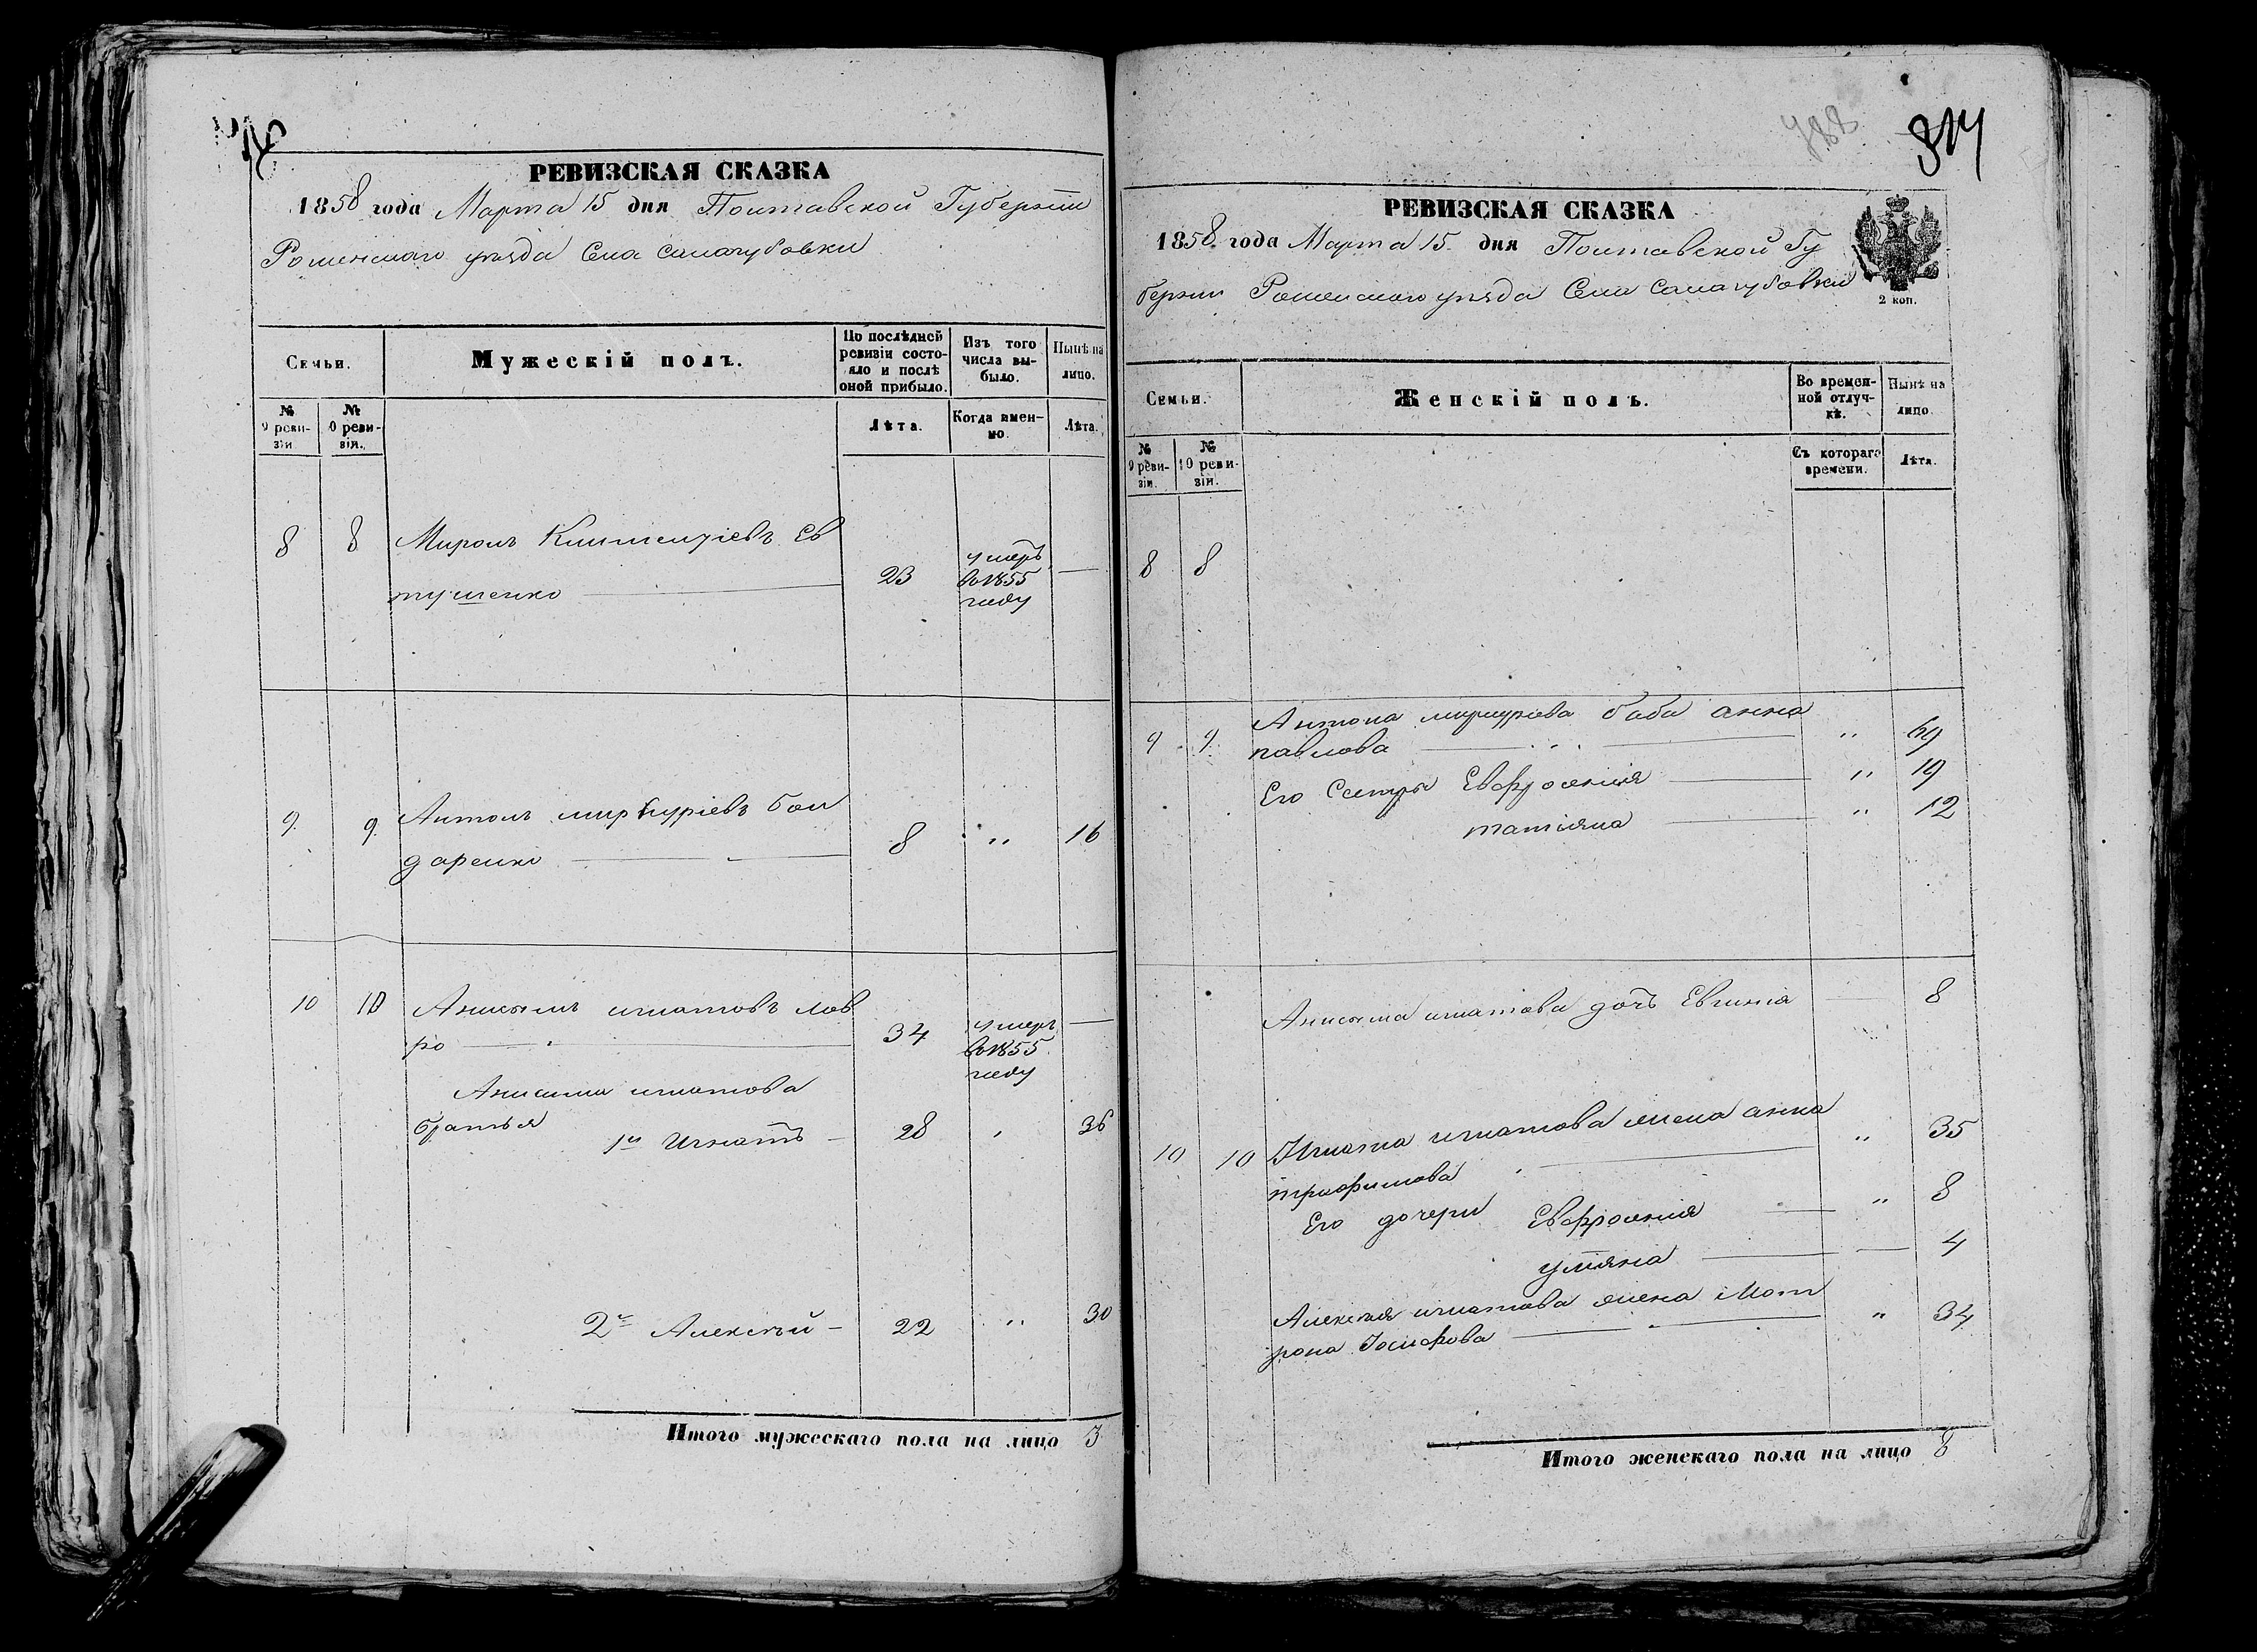 РЕВИЗСКАЯ СКАЗКА
1858 года Марта 15 дня Полтавской Губерніи
Роменскаго уѣзда Села Самагубовки
Семьи.
Мужескій полъ.
По послѣдней ревизіи состояло и послѣ оной прибыло.
Изъ того числа выбыло.
Нынѣ на лицо.
№ 9 ревизіи
№ 10 ревизія.
Лѣта.
Когда именно.
Лѣта.
8 8 Миронъ Климентіевъ Ев
тушенко 23 умеръ в 1855 году —
9. 9. Антонъ меркуріевъ бон
даренко 8 " 16
10 10 Анисымъ игнатовъ лав
ро 34 умеръ в 1855 году —
Анисима игнатова
братья 1й Игнатъ - 28 " 36
2й Алексѣй - 22 " 30
Итого мужескаго пола на лицо 3
788
814
РЕВИЗСКАЯ СКАЗКА
1858 года Марта 15. дня Полтавской Гу
берніи Роменскаго уѣзда Села Самагубовки
2 коп.
Семьи.
Женскій полъ.
Во временной отлучкѣ.
Нынѣ на лицо.
№ 9 ревизіи.
№ 10 ревизіи.
Съ котораго времени.
Лѣта.
8 8
9 9. Антона меркуріева баба анна
павлова " 69
Его Сестры Евфросинія " 19
татіяна " 12
Анисыма игнатова дочь Евгинія — 8
10 10 Игната игнатова жена анна
трофимова " 35
Его дочери Евфросинія " 8
уліяна — 4
Алексѣя игнатова жена Мот
рона Іосифова " 34
Итого женскаго пола на лицо 8